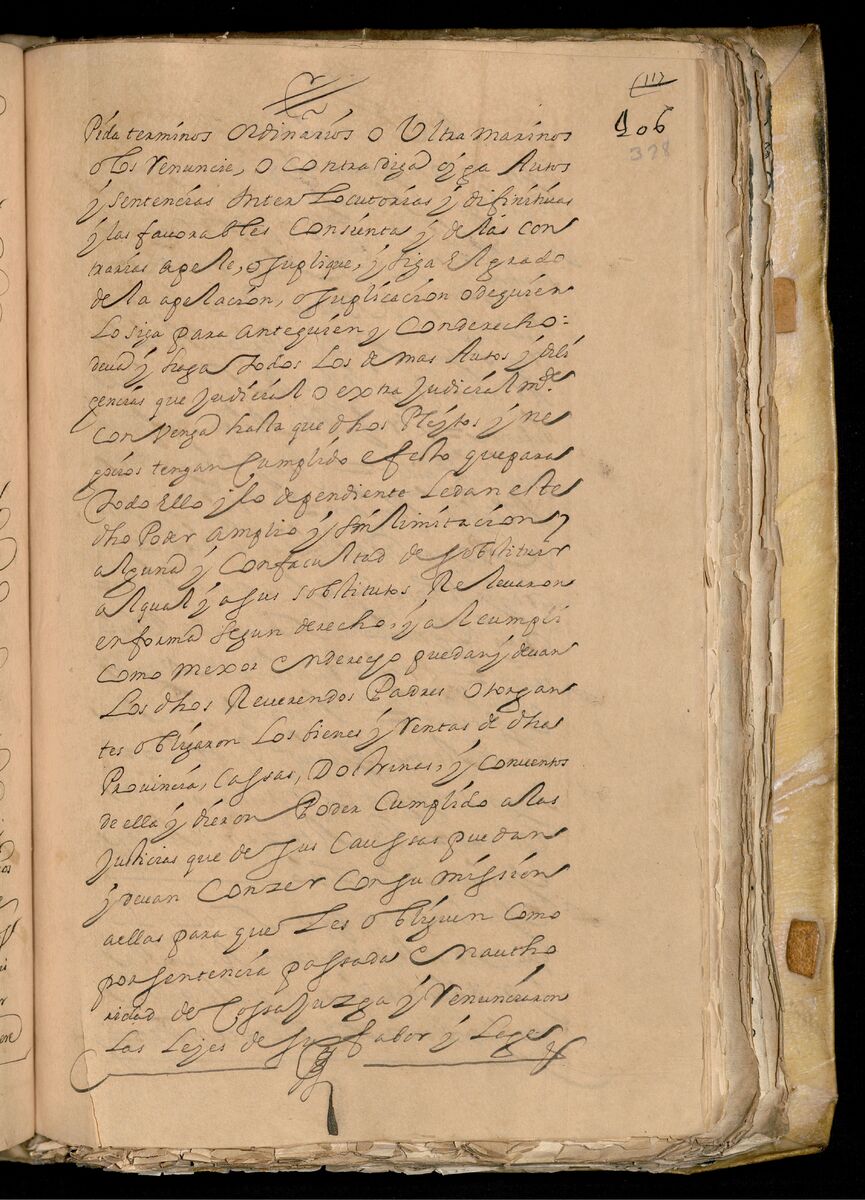 (117
106
378
Pida terminos Ordinarios o Ultramarinos
o los Renuncie, o contradiga oyga Autos
y sentencias Inter Locutorias y difinitivas
y las favorables Consienta y de las con
trarias apele, o suplique, y siga el grado
de la apelacion, o suplicacion o de quien
Lo siga para ante quien y Con derecho
deva y haga todos Los demas Autos y dili
gencias que Judicial o extra Judicialmte.
Convenga hasta que dhos Pleytos y ne
gocios tengan Cumplido efecto que para
Todo Ello y lo dependiente Le dan este
dho Poder amplio y sin limitacion
alguna y Con facultad de sobstituir
al qual y a sus sobstitutos Relevaron
en forma segun derecho, y al cumpli
Como mexor en derecho puedan y devan
Los dhos Reverendos Padres otorgan
tes obligaron Los bienes y Rentas de dha
Provincia, Cassas, Doctrinas, y Conventos
de ella y dieron Poder Cumplido a las
Justicias que de sus Caussas puedan
y devan Conzer Con su mission
a ellas para que Les obliguen Como
por sentencia passada en autho
ridad de Cossa Juzga y Renunciaron
Las Leyes de su fabor y Leges